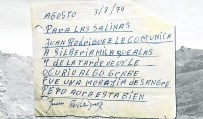 AGOSTO 3/8/79
PARA LAS SALINAS
JUAN RODRIGUEZ LE COMUNICA
A SILBERIA MILA QUE A LAS
4 DE LA TARDE HOY LE
OCURIO ALGO GRABE
FUE UNA MORATIA DE SANGRE
PERO AORA ESTA BIEN
Juan Rodriguez